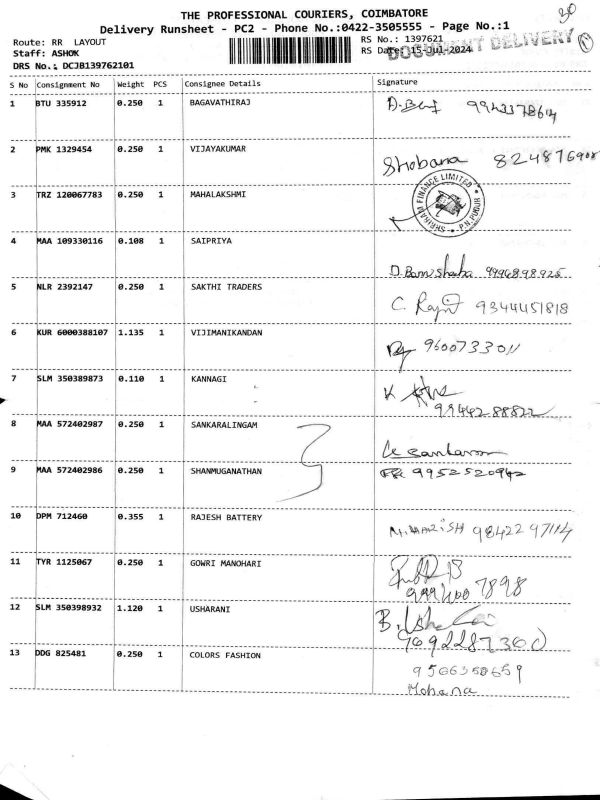 THE PROFESSIONAL COURIERS, COIMBATORE
Delivery Runsheet - PC2 - Phone No.:0422-3505555 - Page No.:1
30
Route: RR LAYOUT
RS No.: 1397621
Staff: ASHOK
RS Date: 15-Jul-2024
DOCUMENT DELIVERY
DRS No.: DCJB139762101
S No Consignment No Weight PCS Consignee Details Signature
1 BTU 335912 0.250 1 BAGAVATHIRAJ
2 PMK 1329454 0.250 1 VIJAYAKUMAR Shobana 824876908
3 TRZ 120067783 0.250 1 MAHALAKSHMI
SHRIRAM FINANCE LIMITED P.N.PUDUR
4 MAA 109330116 0.108 1 SAIPRIYA 9994898925
5 NLR 2392147 0.250 1 SAKTHI TRADERS 9344451818
6 KUR 6000388107 1.135 1 VIJIMANIKANDAN 9600733011
7 SLM 350389873 0.110 1 KANNAGI K
9944288822
8 MAA 572402987 0.250 1 SANKARALINGAM
9 MAA 572402986 0.250 1 SHANMUGANATHAN 9952520942
10 DPM 712460 0.355 1 RAJESH BATTERY
11 TYR 1125067 0.250 1 GOWRI MANOHARI
12 SLM 350398932 1.120 1 USHARANI
7692287360
13 DDG 825481 0.250 1 COLORS FASHION 9566358659
Mohana